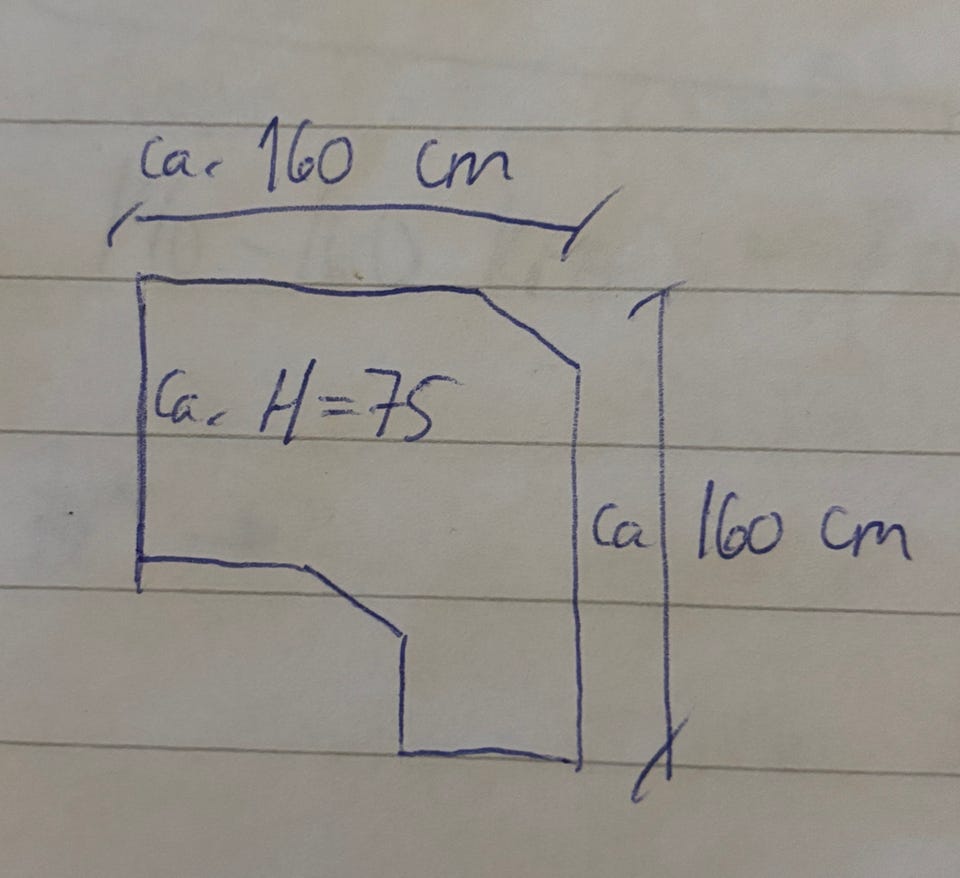 ca. 160 cm
Ca. H=75
Ca 160 cm